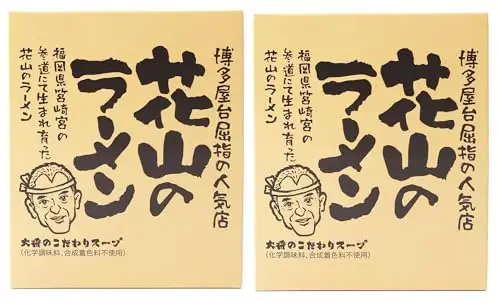 博多屋台屈指の人気店
花山の
ラーメン
福岡県筥崎宮の
参道にて生まれ育った
花山のラーメン
大将のこだわりスープ
(化学調味料、合成着色料不使用)
博多屋台屈指の人気店
花山の
ラーメン
福岡県筥崎宮の
参道にて生まれ育った
花山のラーメン
大将のこだわりスープ
(化学調味料、合成着色料不使用)